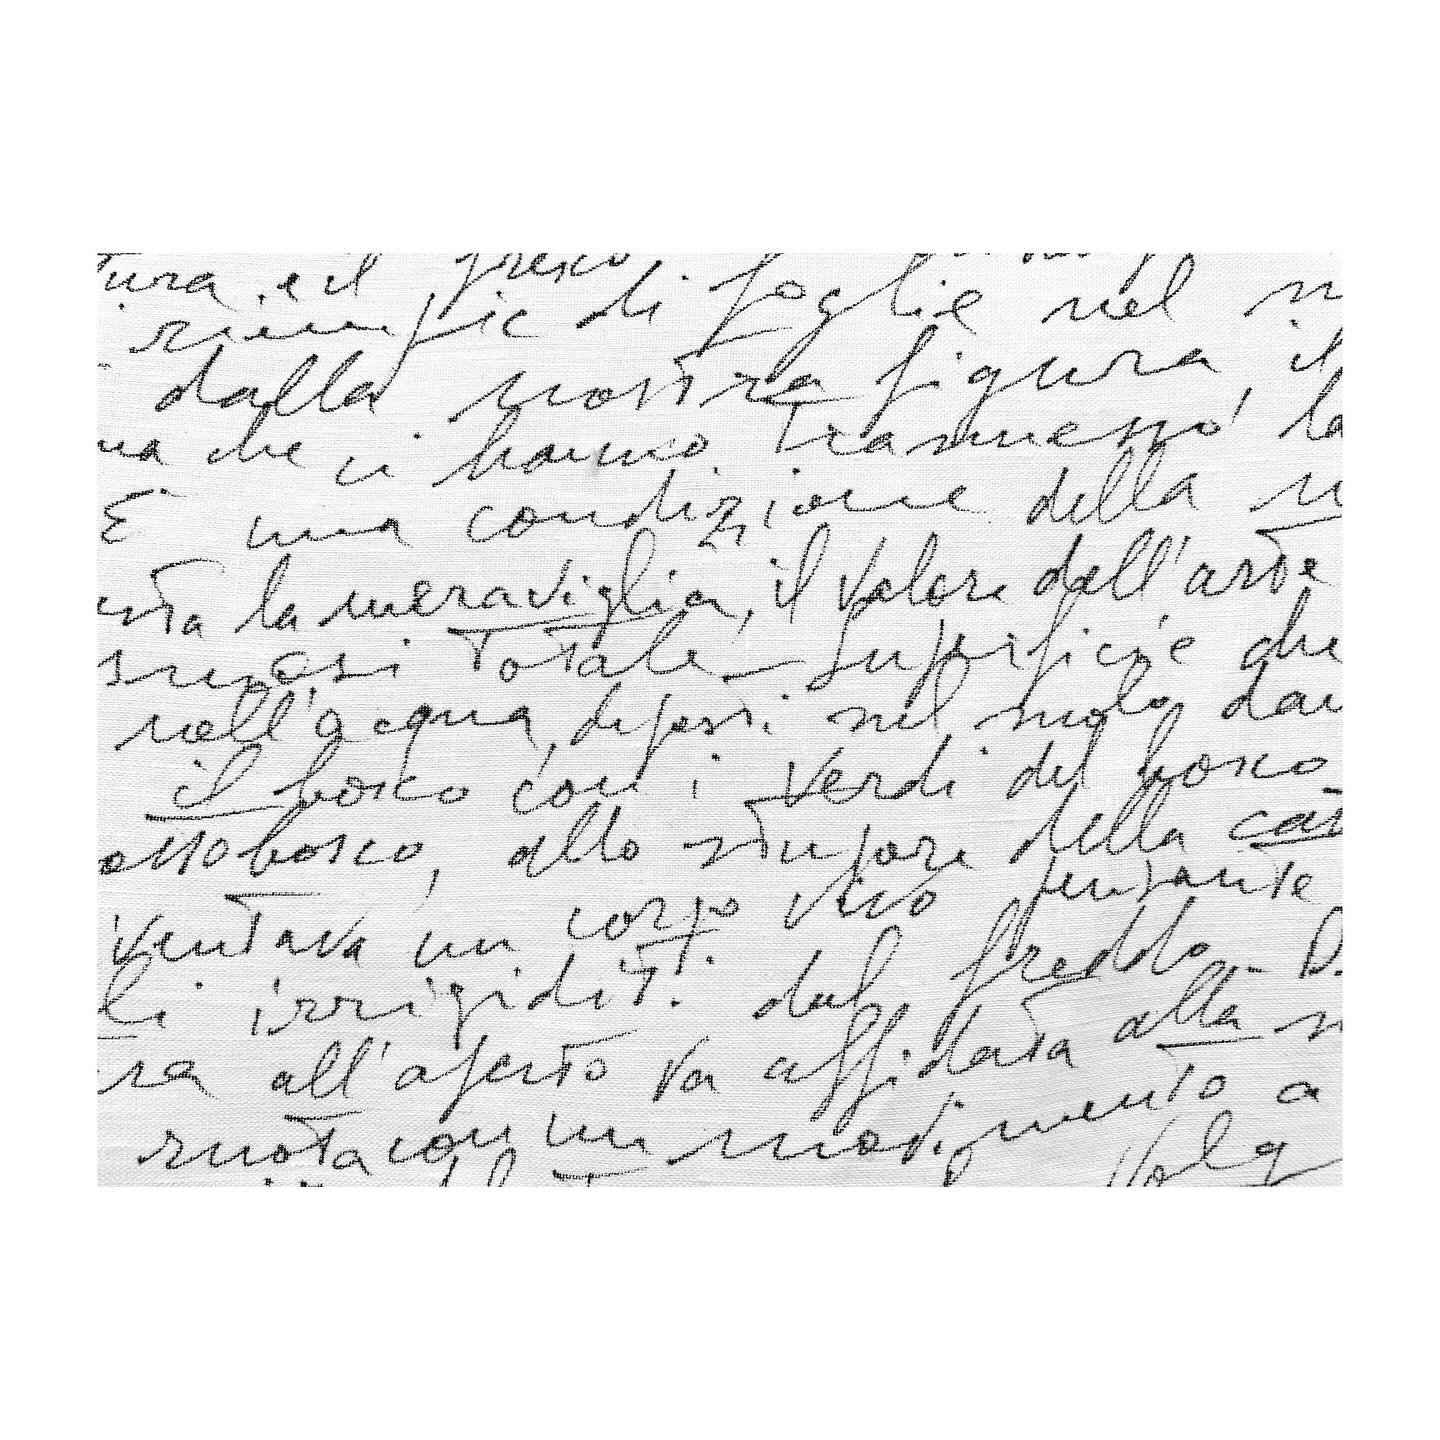 tura, e il fresco
di foglie nel
dalla nostra figura, il
che ci hanno trasmesso, la
È una condizione della
la meraviglia, il valore dell'arte
quasi totale superficie che
nell'acqua, dispersi nel suolo
il bosco con i verdi del bosco
sottobosco, allo stupore della
ventava un corpo vivo pensante
li irrigidit. dal freddo. D.
ra all'aperto va affidata alla
ruota con un movimento a